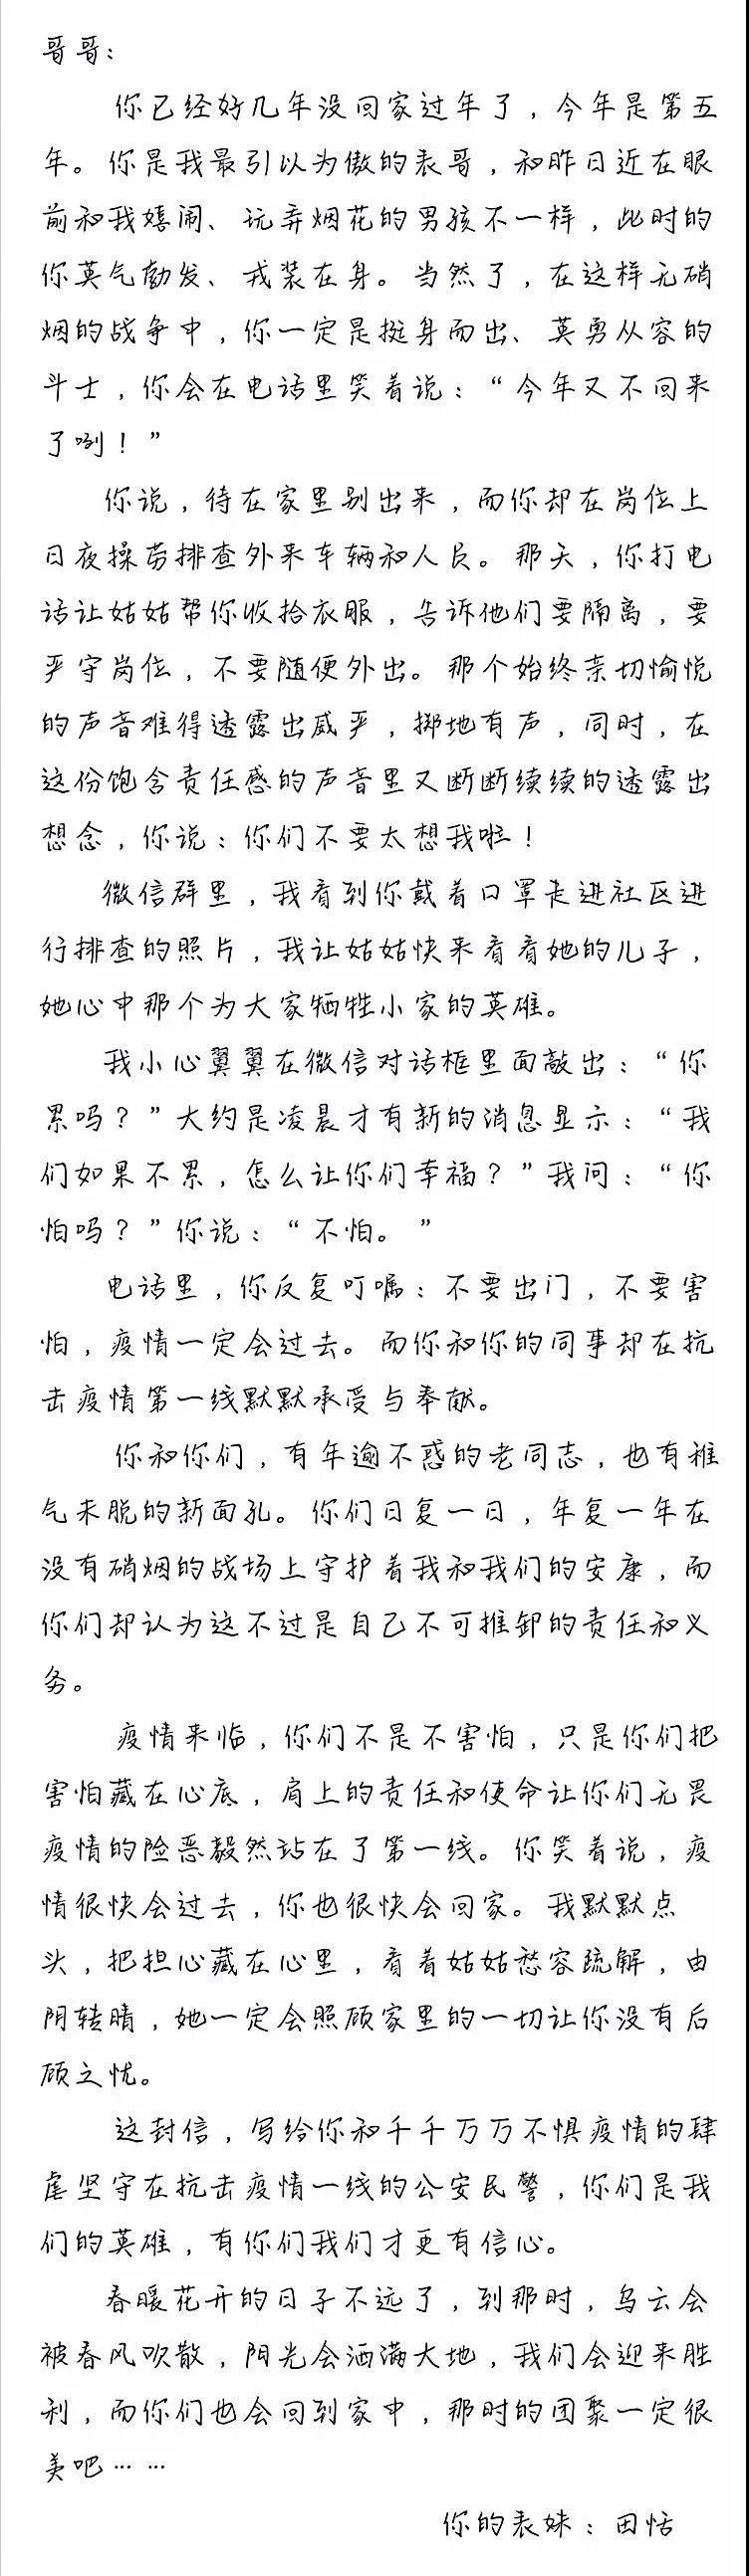 哥哥：
你已经好几年没回家过年了，今年是第五
年。你是我最引以为傲的表哥，和昨日近在眼
前和我嬉闹、玩弄烟花的男孩不一样，此时的
你英气勃发、戎装在身。当然了，在这样无硝
烟的战争中，你一定是挺身而出、英勇从容的
斗士，你会在电话里笑着说：“今年又不回来
了咧！”
你说，待在家里别出来，而你却在岗位上
日夜操劳排查外来车辆和人员。那天，你打电
话让姑姑帮你收拾衣服，告诉他们要隔离，要
严守岗位，不要随便外出。那个始终亲切愉悦
的声音难得透露出威严，掷地有声，同时，在
这份饱含责任感的声音里又断断续续的透露出
想念，你说：你们不要太想我啦！
微信群里，我看到你戴着口罩走进社区进
行排查的照片，我让姑姑快来看看她的儿子，
她心中那个为大家牺牲小家的英雄。
我小心翼翼在微信对话框里面敲出：“你
累吗？”大约是凌晨才有新的消息显示：“我
们如果不累，怎么让你们幸福？”我问：“你
怕吗？”你说：“不怕。”
电话里，你反复叮嘱：不要出门，不要害
怕，疫情一定会过去。而你和你的同事却在抗
击疫情第一线默默承受与奉献。
你和你们，有年逾不惑的老同志，也有稚
气未脱的新面孔。你们日复一日，年复一年在
没有硝烟的战场上守护着我和我们的安康，而
你们却认为这不过是自己不可推卸的责任和义
务。
疫情来临，你们不是不害怕，只是你们把
害怕藏在心底，肩上的责任和使命让你们无畏
疫情的险恶毅然站在了第一线。你笑着说，疫
情很快会过去，你也很快会回家。我默默点
头，把担心藏在心里，看着姑姑愁容疏解，由
阴转晴，她一定会照顾家里的一切让你没有后
顾之忧。
这封信，写给你和千千万万不惧疫情的肆
虐坚守在抗击疫情一线的公安民警，你们是我
们的英雄，有你们我们才更有信心。
春暖花开的日子不远了，到那时，乌云会
被春风吹散，阳光会洒满大地，我们会迎来胜
利，而你们也会回到家中，那时的团聚一定很
美吧……
你的表妹：田恬